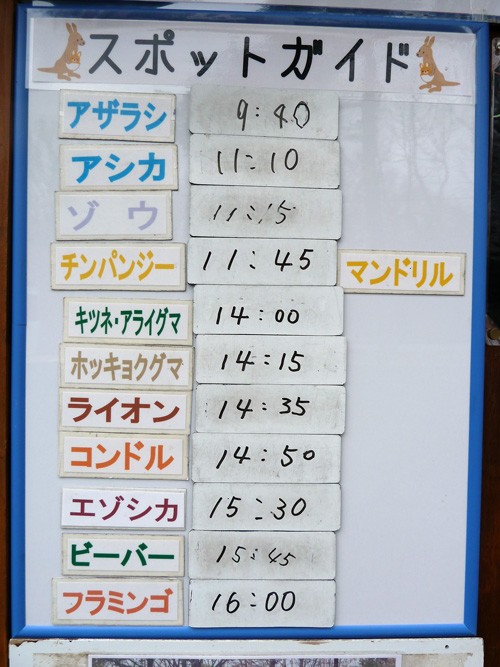 スポットガイド
アザラシ 9:40
アシカ 11:10
ゾウ 11:15
チンパンジー 11:45 マンドリル
キツネ・アライグマ 14:00
ホッキョクグマ 14:15
ライオン 14:35
コンドル 14:50
エゾシカ 15:30
ビーバー 15:45
フラミンゴ 16:00